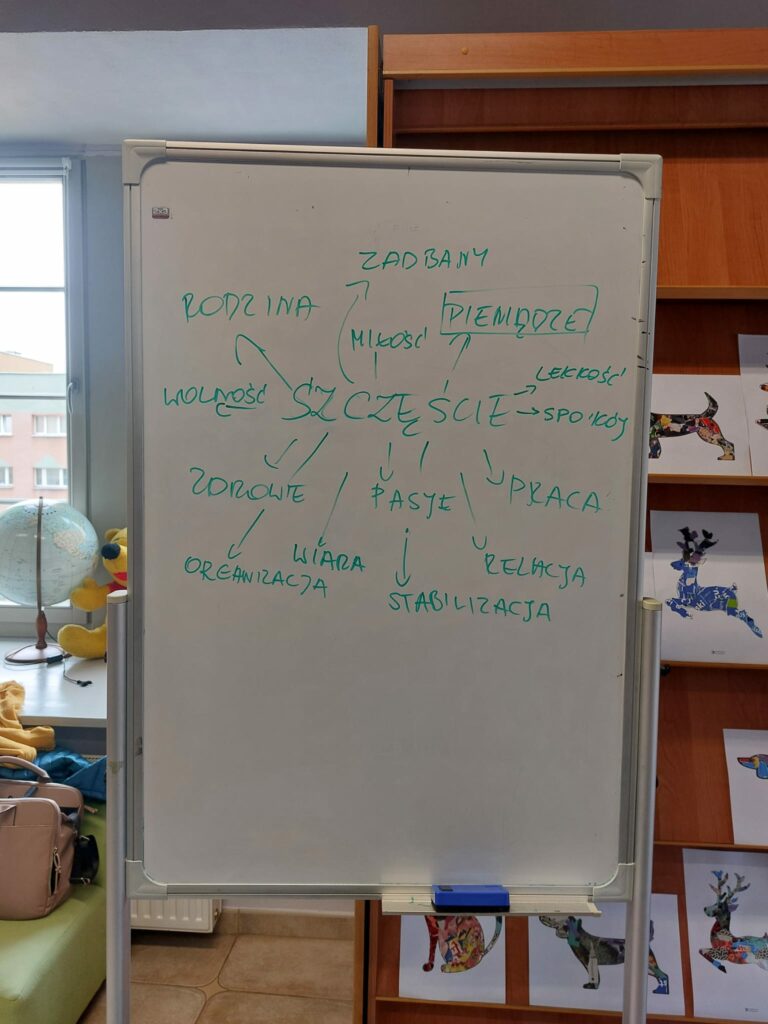 ZADBANY
RODZINA
PIENIĄDZE
MIŁOŚĆ
LEKKOŚĆ
WOLNOŚĆ
SZCZĘŚCIE
SPOKÓJ
ZDROWIE
PASJE
PRACA
ORGANIZACJA
WIARA
RELACJA
STABILIZACJA